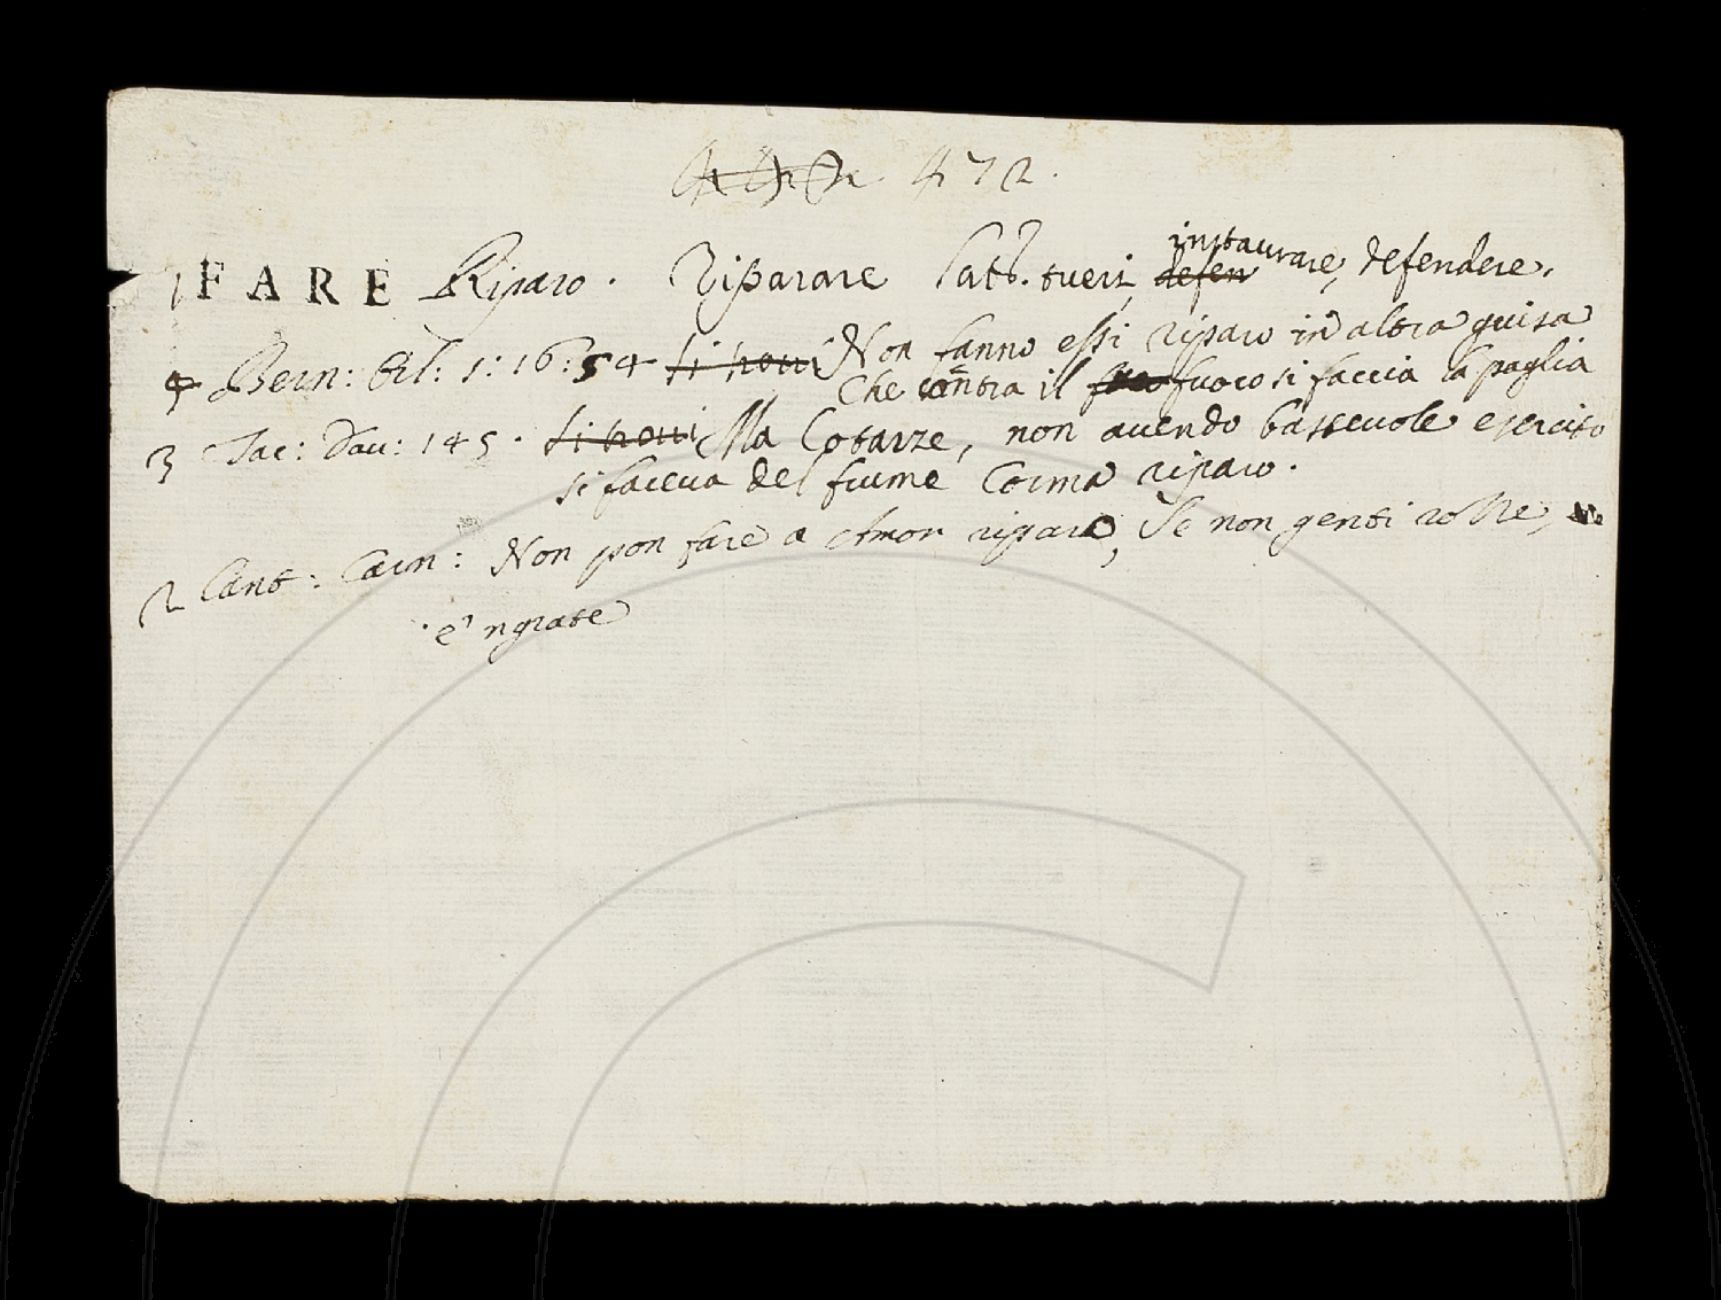 472.
1 FARE Riparo. Riparare Latt. tueri, defen instaurare, defendere.
4 Bern: Orl: 1: 16: 54 si trovi Non fanno essi riparo in altra guisa
Che contra il fuoco si faccia la paglia
3 Tac: Dav: 145. si trovi Ma Cotarze, non avendo bastevole esercito
si faceva del fiume Corma riparo.
2 Cant: Carn: Non pon fare a Amor riparo, Se non genti rozze,
e' ngrate